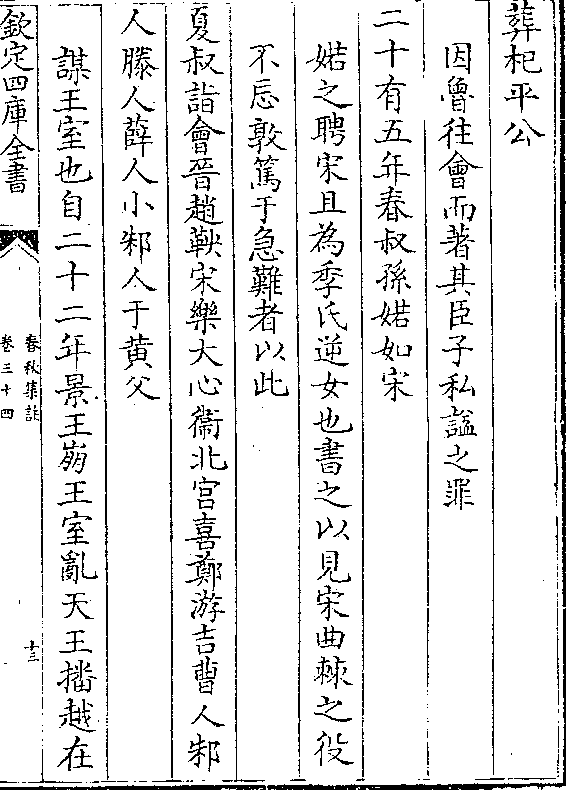 葬杞平公
因魯往會而著其臣子私諡之罪
二十有五年春叔孫婼如宋
婼之聘宋且為季氏逆女也書之以見宋曲棘之役
不忘敦篤于急難者以此
夏叔詣會晉趙鞅宋樂大心衞北宫喜鄭游吉曹人邾
人滕人薛人小邾人于黄父
謀王室也自二十二年景王崩王室亂天王播越在
欽定四庫全書
春秋集註
卷三十四
十三